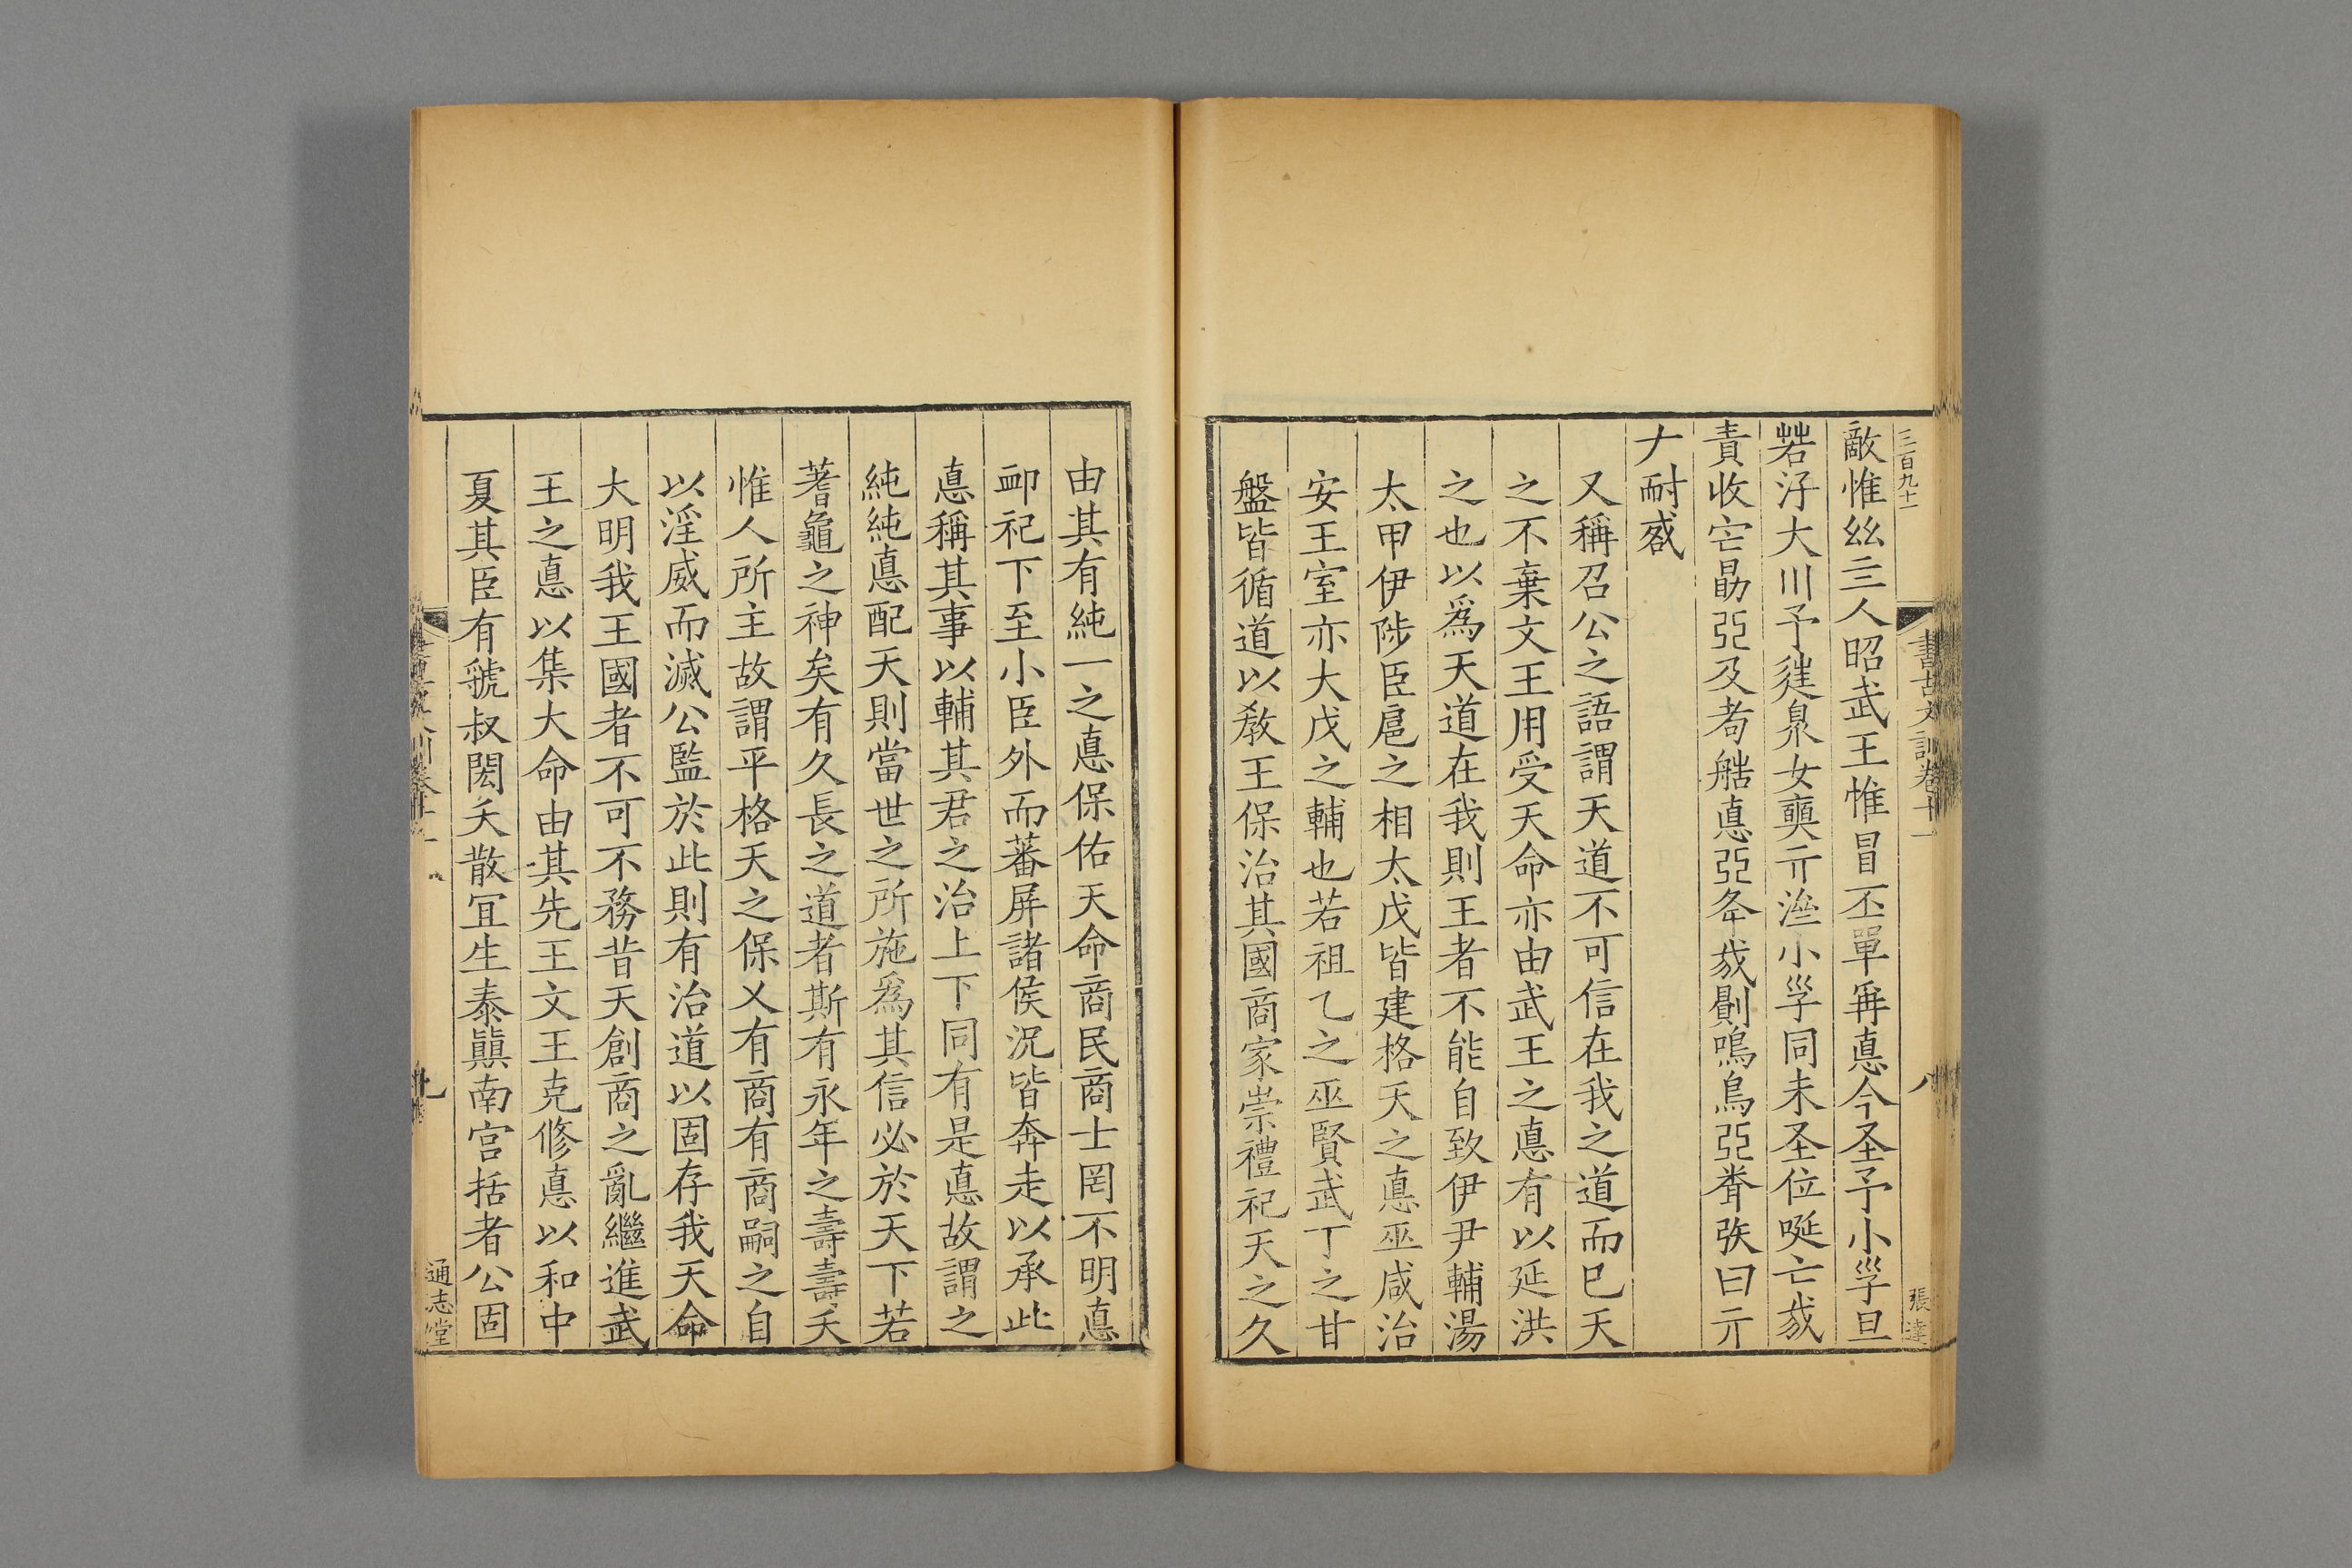 三百九十一
書古文訓卷十一
八
張達
敵惟絲三人昭武王惟冒丕單爯悳今圣予小孚旦
若泘大川予𨓹泉女奭亓淦小孚同未圣位唌亡𢦏
責收宅勗亞及耇𦨖悳亞夅𢦏劓嗚鳥亞聋弞曰亓
ナ耐𢦟
又稱召公之語謂天道不可信在我之道而巳天
之不棄文王用受天命亦由武王之悳有以延洪
之也以爲天道在我則王者不能自致伊尹輔湯
太甲伊陟臣扈之相太戊皆建格天之悳巫咸治
安王室亦大戊之輔也若祖乙之巫賢武丁之甘
盤皆循道以敎王保治其國商家崇禮祀天之久
由其有純一之悳保佑天命商民商士罔不明悳
卹祀下至小臣外而蕃屏諸侯況皆奔走以承此
悳稱其事以輔其君之治上下同有是悳故謂之
純純悳配天則當世之所施爲其信必於天下若
蓍龜之神矣有久長之道者斯有永年之壽壽夭
惟人所主故謂平格天之保乂有商有商嗣之自
以淫威而滅公監於此則有治道以固存我天命
大明我王國者不可不務昔天創商之亂繼進武
王之悳以集大命由其先王文王克修悳以和中
夏其臣有虢叔閎夭散宜生泰顚南宫括者公固
九
通志堂